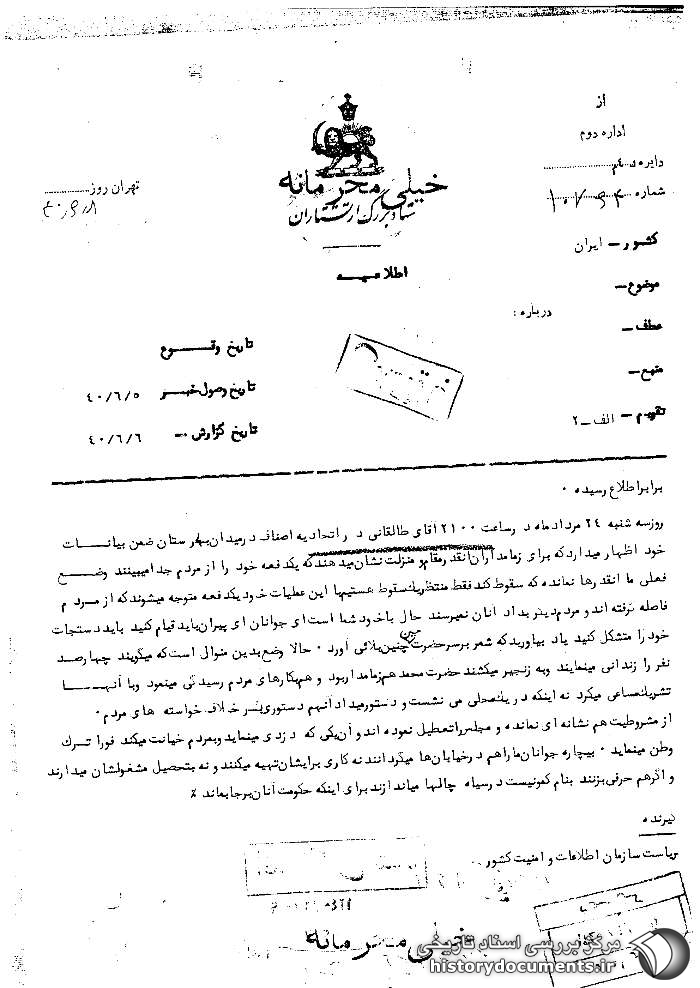 از
اداره دوم
دایره
شماره
تهران روز
خیلی محرمانه
ستاد بزرگ ارتشتاران
کشور - ایران
اطلاعیه
موضوع -
درباره :
عطف -
تاریخ وقوع
منبع -
تاریخ وصول خبر ۴۰/۶/۵
تقویم - الف - ۲
تاریخ گزارش - ۴۰/۶/۶
برابر اطلاع رسیده ۰
روز سه شنبه ۲۴ مرداد ماه در ساعت ۲۱۰۰ آقای طالقانی در اتحادیه اصناف در میدان بهارستان ضمن بیانات
خود اظهار میدارد که برای زمامداران انقدر مقام و منزلت نشان میدهند که یکدفعه خود را از مردم جدا میبینند وضع
فعلی ما انقدرها نمانده که سقوط کند فقط منتظر یک سقوط هستیم با این عملیات خود یکدفعه متوجه میشوند که از مردم
فاصله گرفته اند و مردم دیگر بداد انان نمیرسند حال با خود شما است ای جوانان ای پیران باید قیام کنید باید دستجات
خود را متشکل کنید یاد بیاورید که شمر بر سر حضرت حسین چنین بلائی آورد ۰ حالا وضع بدین منوال است که میگویند چهارصد
نفر را زندانی مینمایند وبه زنجیر میکشند حضرت محمد هم زمامدار بود و همکارهای مردم رسیدگی مینمود وبا آنها
تشریک مساعی میکرد نه اینکه در یک محلی می نشست و دستور میداد آنهم دستوری بر خلاف خواسته های مردم ۰
از مشروطیت هم نشانه ای نمانده و مجلس را تعطیل نموده اند و آن یکی که دزدی مینماید وبمردم خیانت میکند فورا ترک
وطن مینماید ۰ بیچاره جوانان ما راهم در خیابان‌ها میگردانند نه کاری برایشان تهیه میکنند و نه بتحصیل مشغولشان میدارند
و اگر هم حرفی بزنند بنام کمونیست در سیاه چالها میاندازند برای اینکه حکومت آنان بر جا بماند ٪
گیرنده
ریاست سازمان اطلاعات و امنیت کشور
خیلی محرمانه
مرکز بررسی اسناد تاریخی
historydocuments.ir